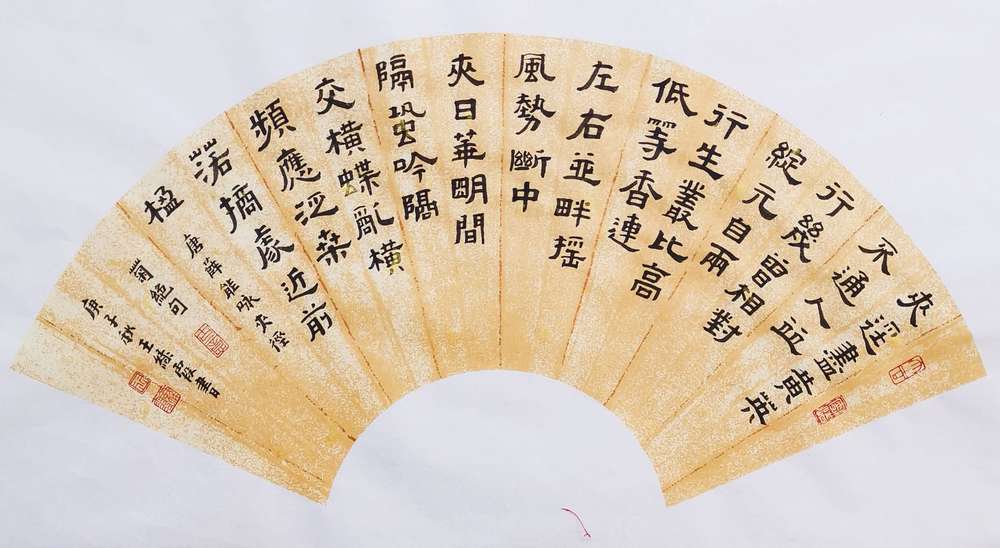 夾逕盡黃英
不通人並
行幾曾相對
綻元自兩
行生叢比高
低等香連
左右並畔搖
風勢斷中
夾日華明間
隔蛩吟隔
交橫蝶亂橫
頻應泛桒
落摘處近前
楹
唐薛能咏夾徑
菊絕句
庚子秋王霞書